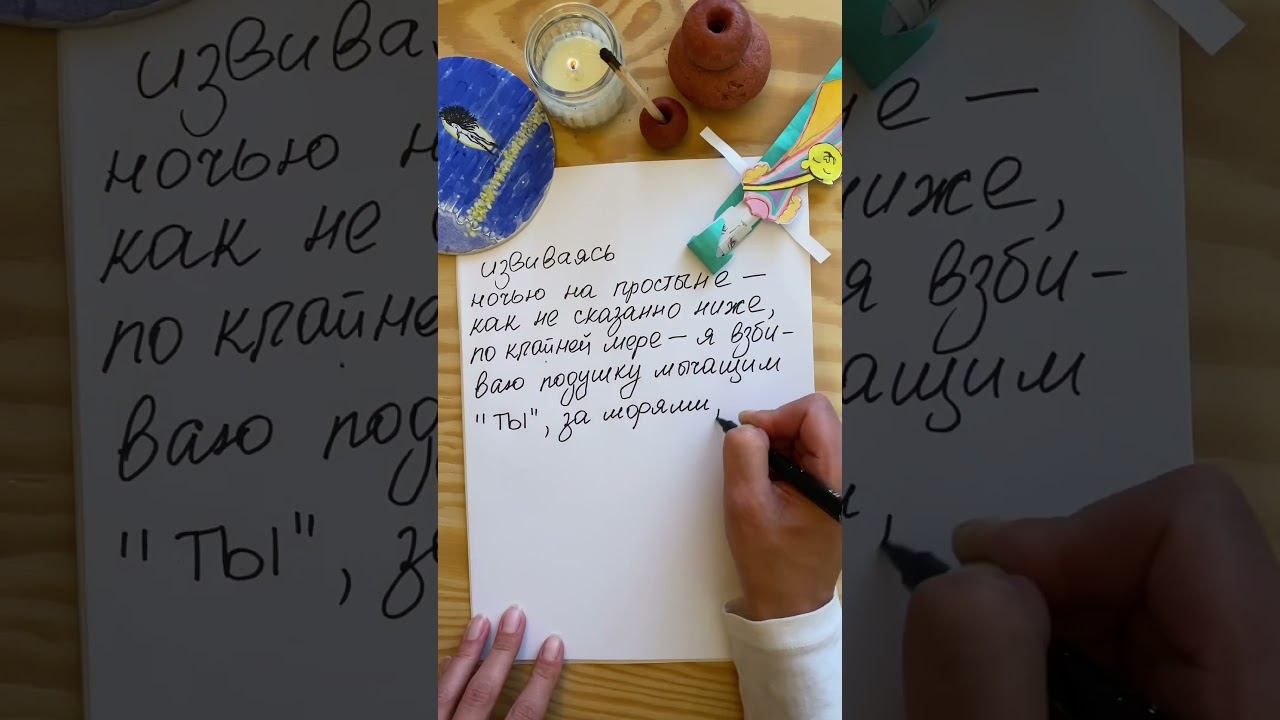 извиваясь
ночью на простыне —
как не сказанно ниже,
по крайней мере — я взби-
ваю подушку мычащим
"ты", за морями,